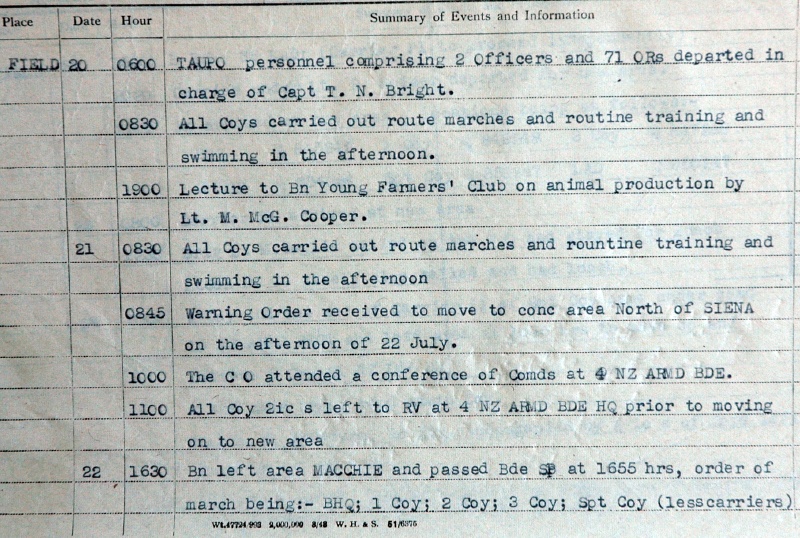 Place Date Hour Summary of Events and Information
FIELD 20 0600 TAUPO personnel comprising 2 Officers and 71 ORs departed in
charge of Capt T. N. Bright.
0830 All Coys carried out route marches and routine training and
swimming in the afternoon.
1900 Lecture to Bn Young Farmers' Club on animal production by
Lt. M. McG. Cooper.
21 0830 All Coys carried out route marches and rountine training and
swimming in the afternoon
0845 Warning Order received to move to conc area North of SIENA
on the afternoon of 22 July.
1000 The C O attended a conference of Comds at 4 NZ ARMD BDE.
1100 All Coy 2ic s left to RV at 4 NZ ARMD BDE HQ prior to moving
on to new area
22 1630 Bn left area MACCHIE and passed Bde SP at 1655 hrs, order of
march being:- BHQ; 1 Coy; 2 Coy; 3 Coy; Spt Coy (lesscarriers)
Wt.47724.993 2,000,000 8/43 W. H. & S. 51/6375